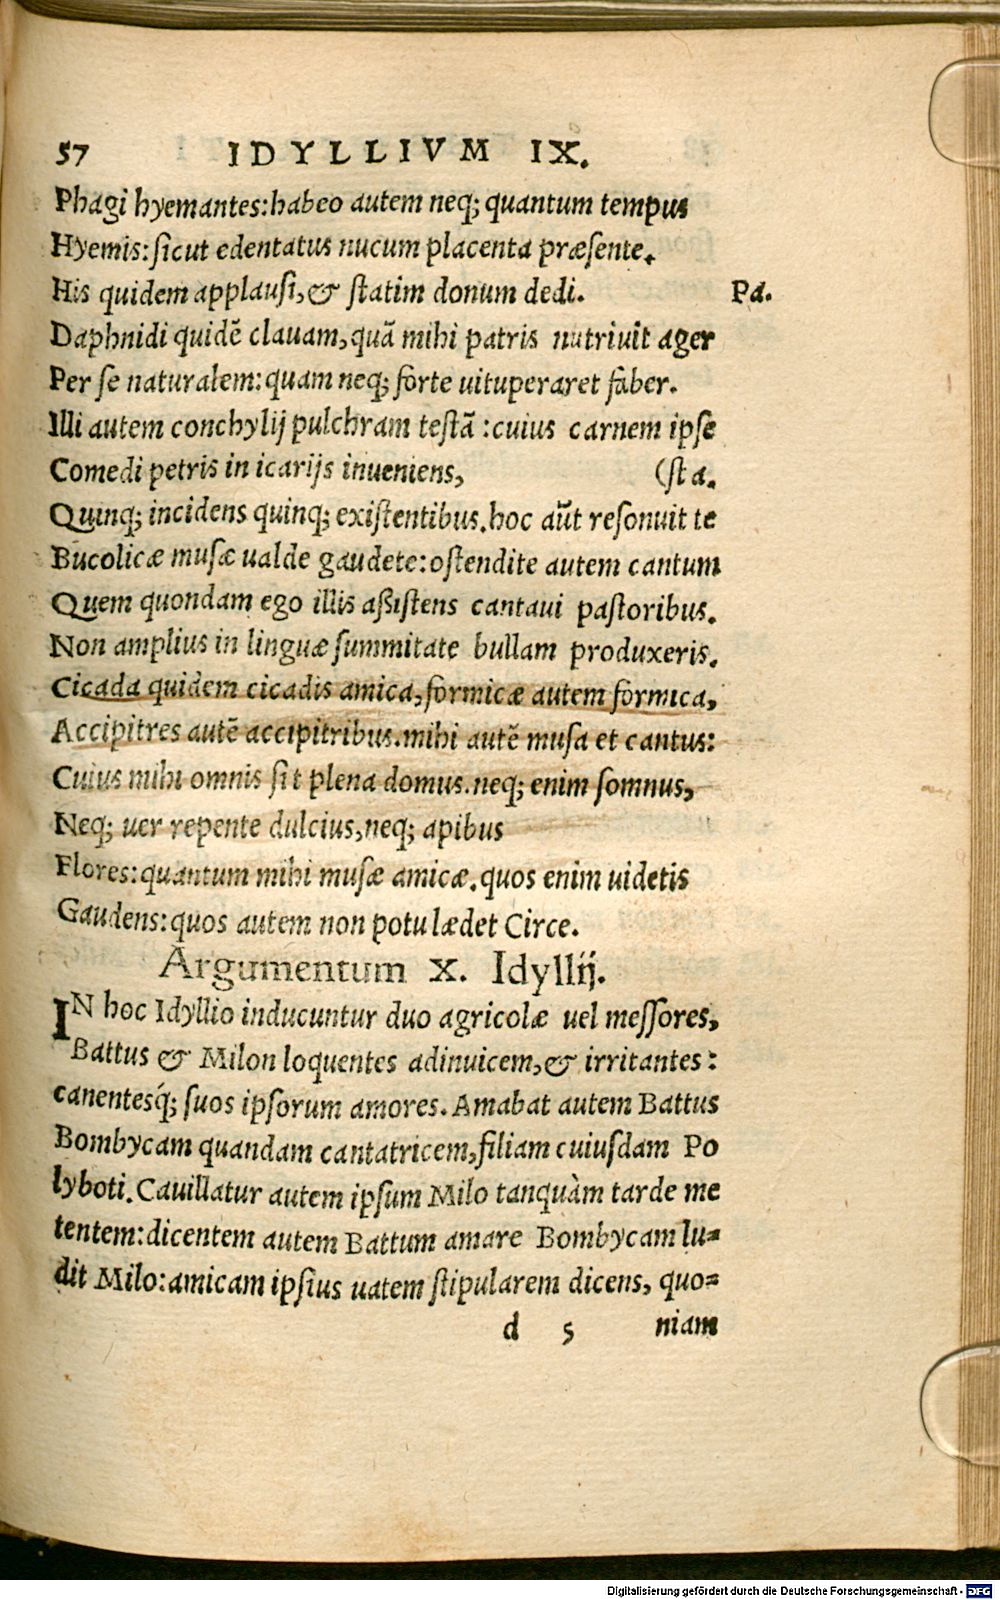 57 IDYLLIVM IX.
Phagi hyemantes:habeo autem neq; quantum tempus
Hyemis:sicut edentatus nucum placenta præsente.
His quidem applausi,& statim donum dedi. Pa.
Daphnidi quidē clauam,quā mihi patris nutriuit ager
Per se naturalem:quam neq; forte uituperaret faber.
Illi autem conchylij pulchram testā :cuius carnem ipse
Comedi petris in icarijs inueniens, (sta.
Quinq; incidens quinq; existentibus.hoc aūt resonuit te
Bucolicæ musæ ualde gaudete:ostendite autem cantum
Quem quondam ego illis assistens cantaui pastoribus.
Non amplius in linguæ summitate bullam produxeris.
Cicada quidem cicadis amica,formicæ autem formica,
Accipitres autē accipitribus.mihi autē musa et cantus:
Cuius mihi omnis sit plena domus.neq; enim somnus,
Neq; uer repente dulcius,neq; apibus
Flores:quantum mihi musæ amicæ.quos enim uidetis
Gaudens:quos autem non potu lædet Circe.
Argumentum X. Idyllij.
IN hoc Idyllio inducuntur duo agricolæ uel messores,
Battus & Milon loquentes adinuicem,& irritantes:
canentesq́; suos ipsorum amores. Amabat autem Battus
Bombycam quandam cantatricem,filiam cuiusdam Po
lyboti. Cauillatur autem ipsum Milo tanquàm tarde me
tentem:dicentem autem Battum amare Bombycam lu-
dit Milo:amicam ipsius uatem stipularem dicens, quo-
d 5 niam
Digitalisierung gefördert durch die Deutsche Forschungsgemeinschaft - DFG